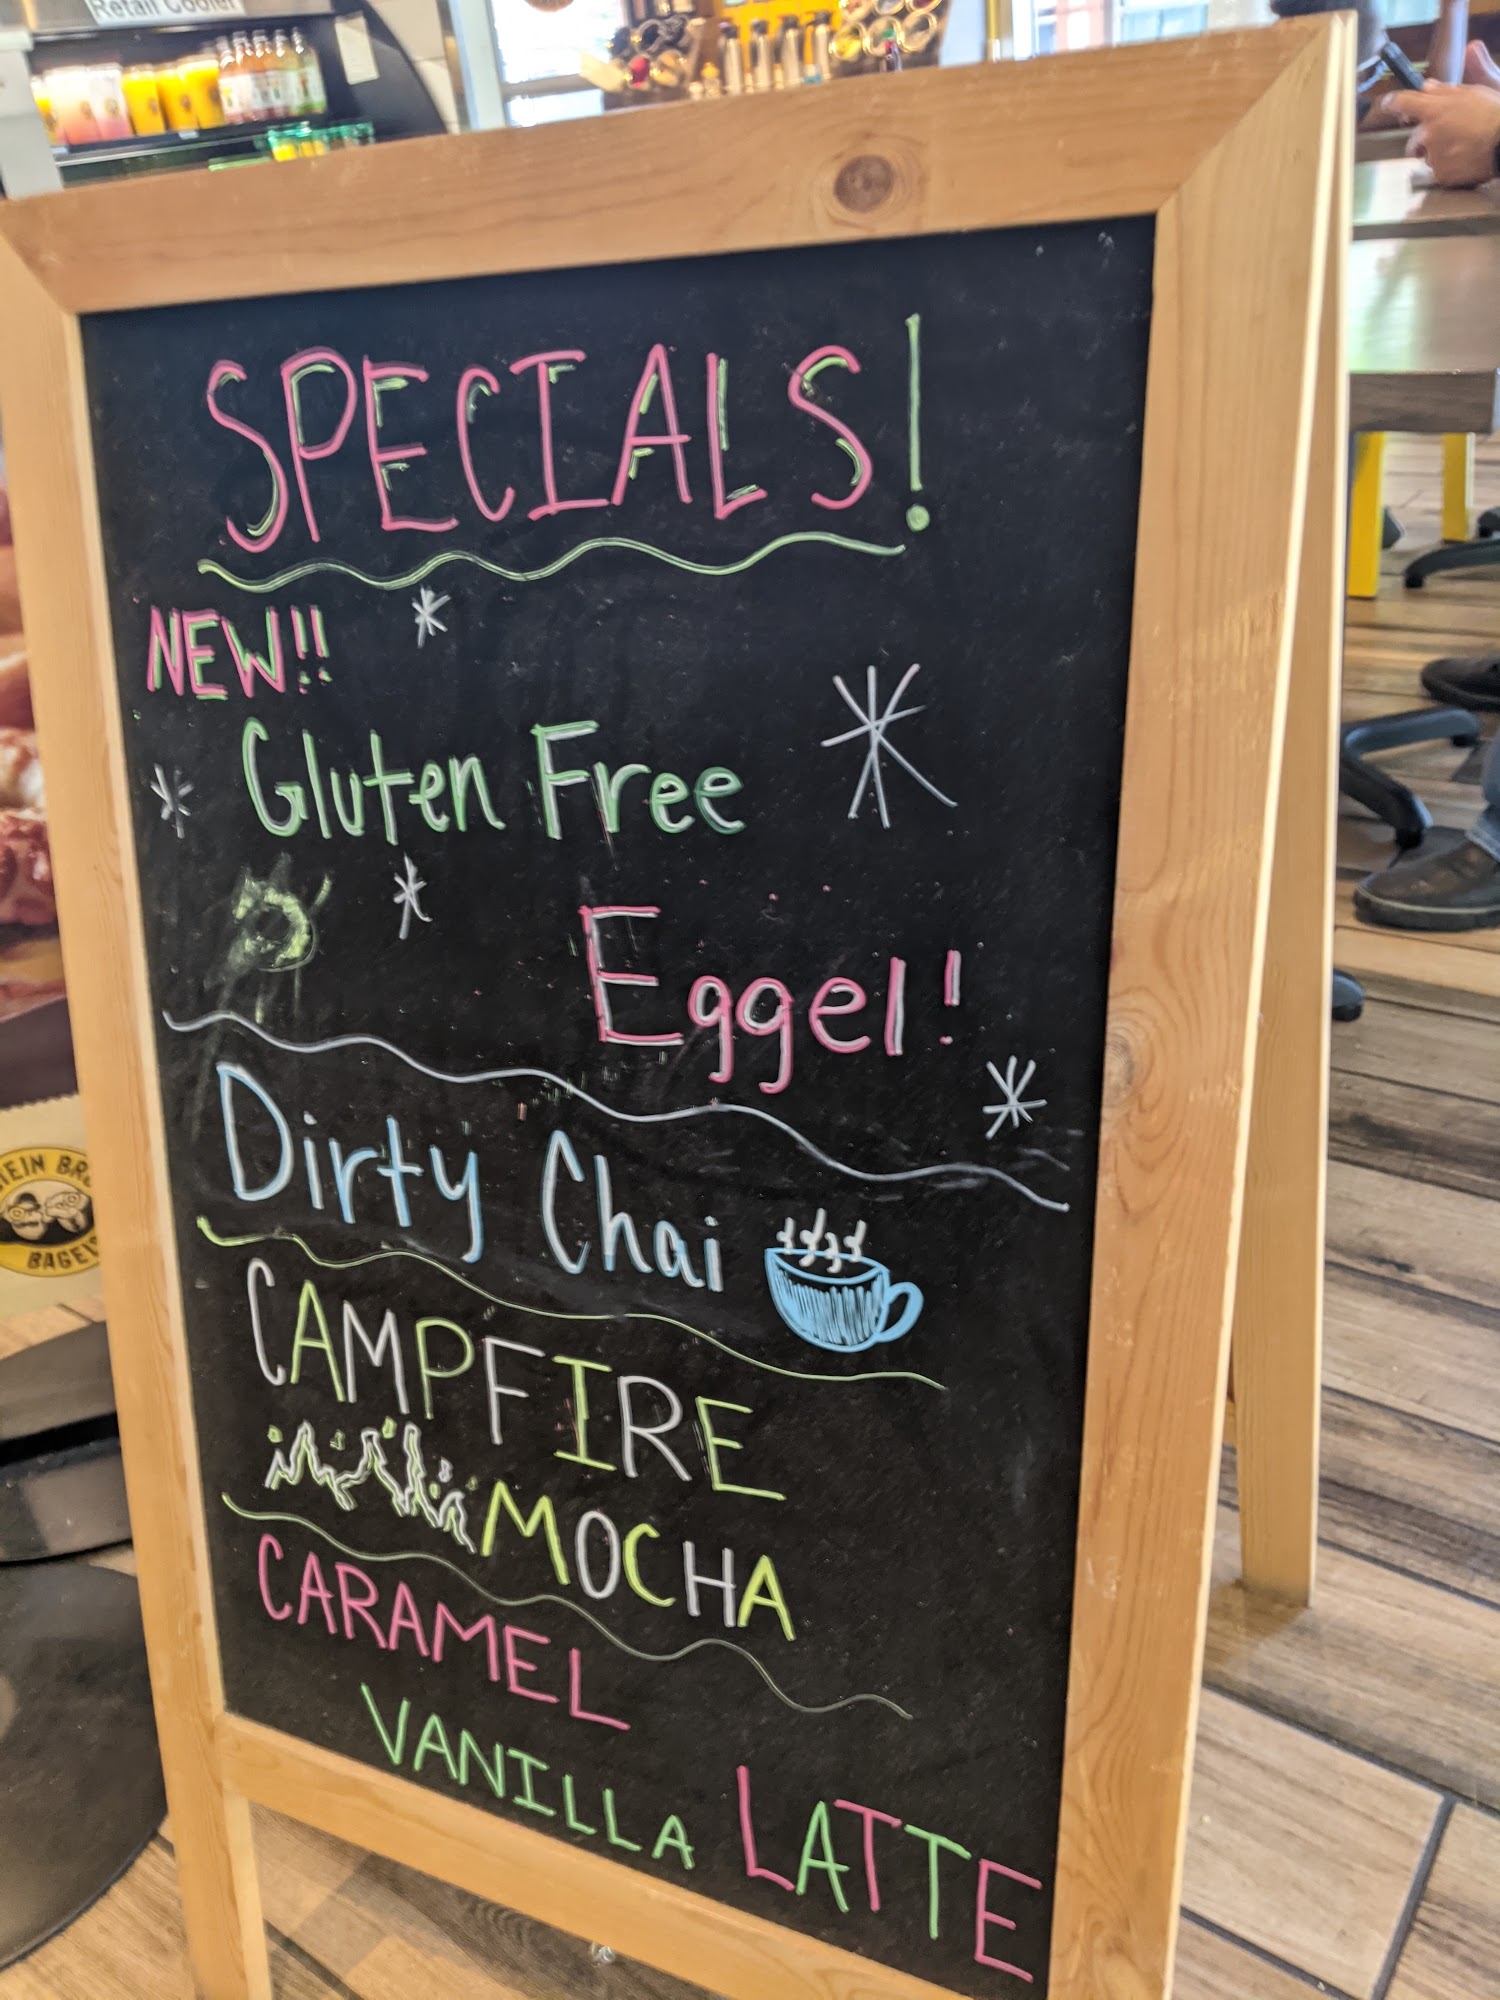 Retail Cooler
SPECIALS!
NEW!!
Gluten Free
Eggel!
Dirty Chai
CAMPFIRE
MOCHA
CARAMEL
VANILLA LATTE
BAGELS